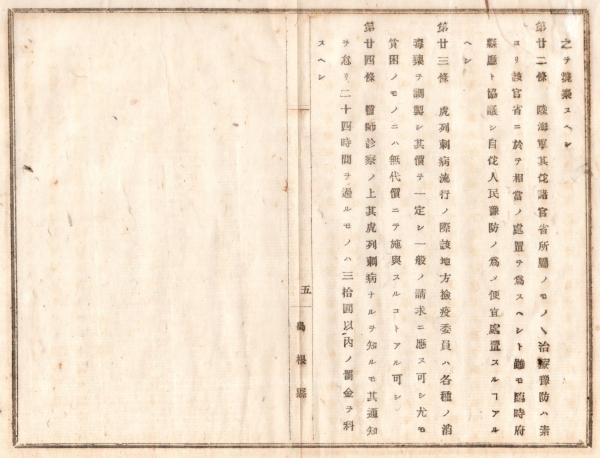 之ヲ施業スヘシ
第廿二條 陸海軍其佗諸官省所屬ノモノヽ治療豫防ハ素
ヨリ該官省ニ於テ相當ノ處置ヲ爲スヘシト雖モ臨時府
縣廳ト協議シ自佗人民豫防ノ爲メ便宜處置スルヿアル
ヘシ
第廿三條 虎列剌病流行ノ際該地方撿疫委員ハ各種ノ消
毒藥ヲ調製シ其價ヲ一定シ一般ノ請求ニ應ス可シ尤モ
貧困ノモノニハ無代價ニテ施與スルコトアル可シ
第廿四條 醫師診察ノ上其虎列剌病ナルヲ知ルモ其通知
ヲ怠リ二十四時間ヲ過ルモノハ三拾圓以內ノ罰金ヲ科
スヘシ
五
島根縣